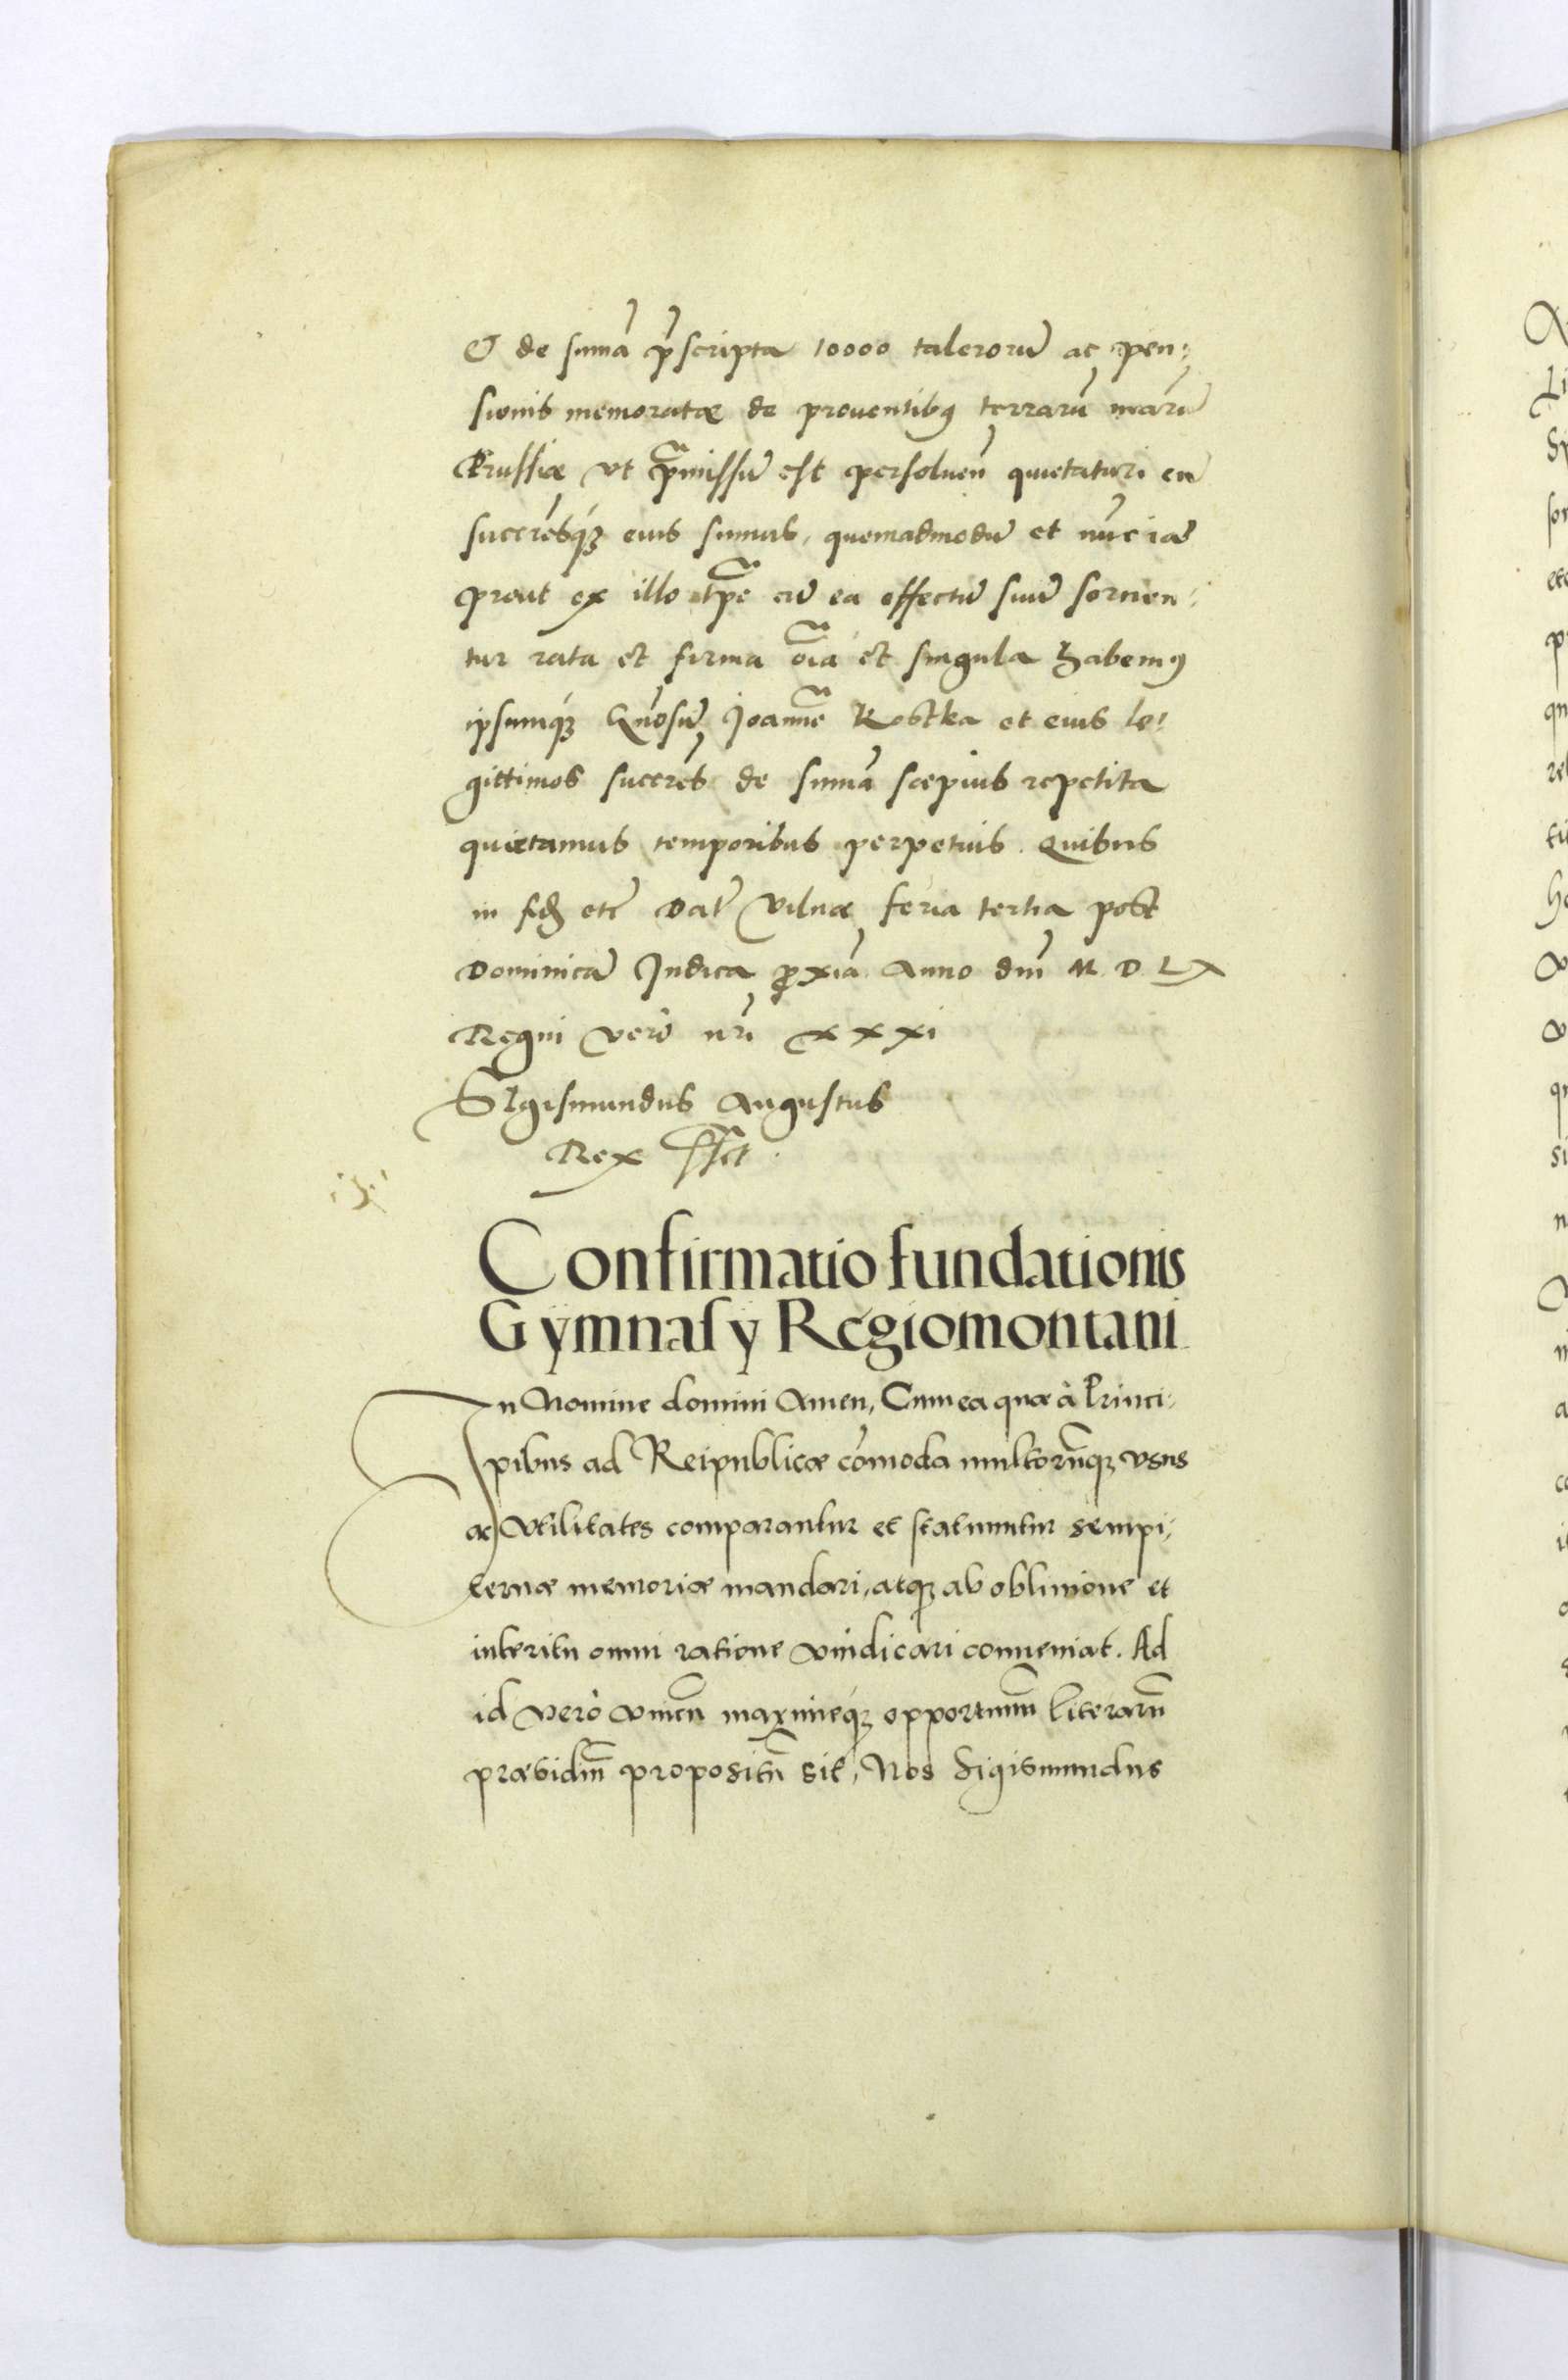 & de sumā p̄scripta 10000 talerorū ac pen:
sionis memoratæ de prouentibꝰ terrarū nrārū
Prussiæ vt p̄missū est persoluen̄ quietaturi eū
succr̄esq́ꝫ eius sumus, quemadmodū et nūc iā
prout ex illo tp̄e cū ea effectū suū sorcien:
tur rata et firma oīa et singula habemꝰ
ipsumq́ꝫ Gn̄osū Joannē Kostka et eius le:
gittimos succr̄es de sumā sæpius repetita
quietamus temporibus perpetuis. Quibus
in fidē etc̄ Dat̄ Vilnæ feria tertia post
Dominicā Judica ꝓxiā Anno dn̄i M. D. LX
Regni verò nr̄i xxxi
SIgismundus Augustus
Rex sst
Confirmatio fundationis
Gÿmnasÿ Regiomontani
In Nomine domini Amen, Cum ea quæ à Princi:
pibus ad Reipublicæ com̄oda multorūqꝫ vsus
ac vtilitates comparantur et statuuntur sempi:
ternæ memoriæ mandari, atqꝫ ab obliuione et
interitu omni ratione vindicari conueniat. Ad
id verò vnicū maximeq́ꝫ opportunū literarū
præsidiū propositū sit, Nos Sigismundus